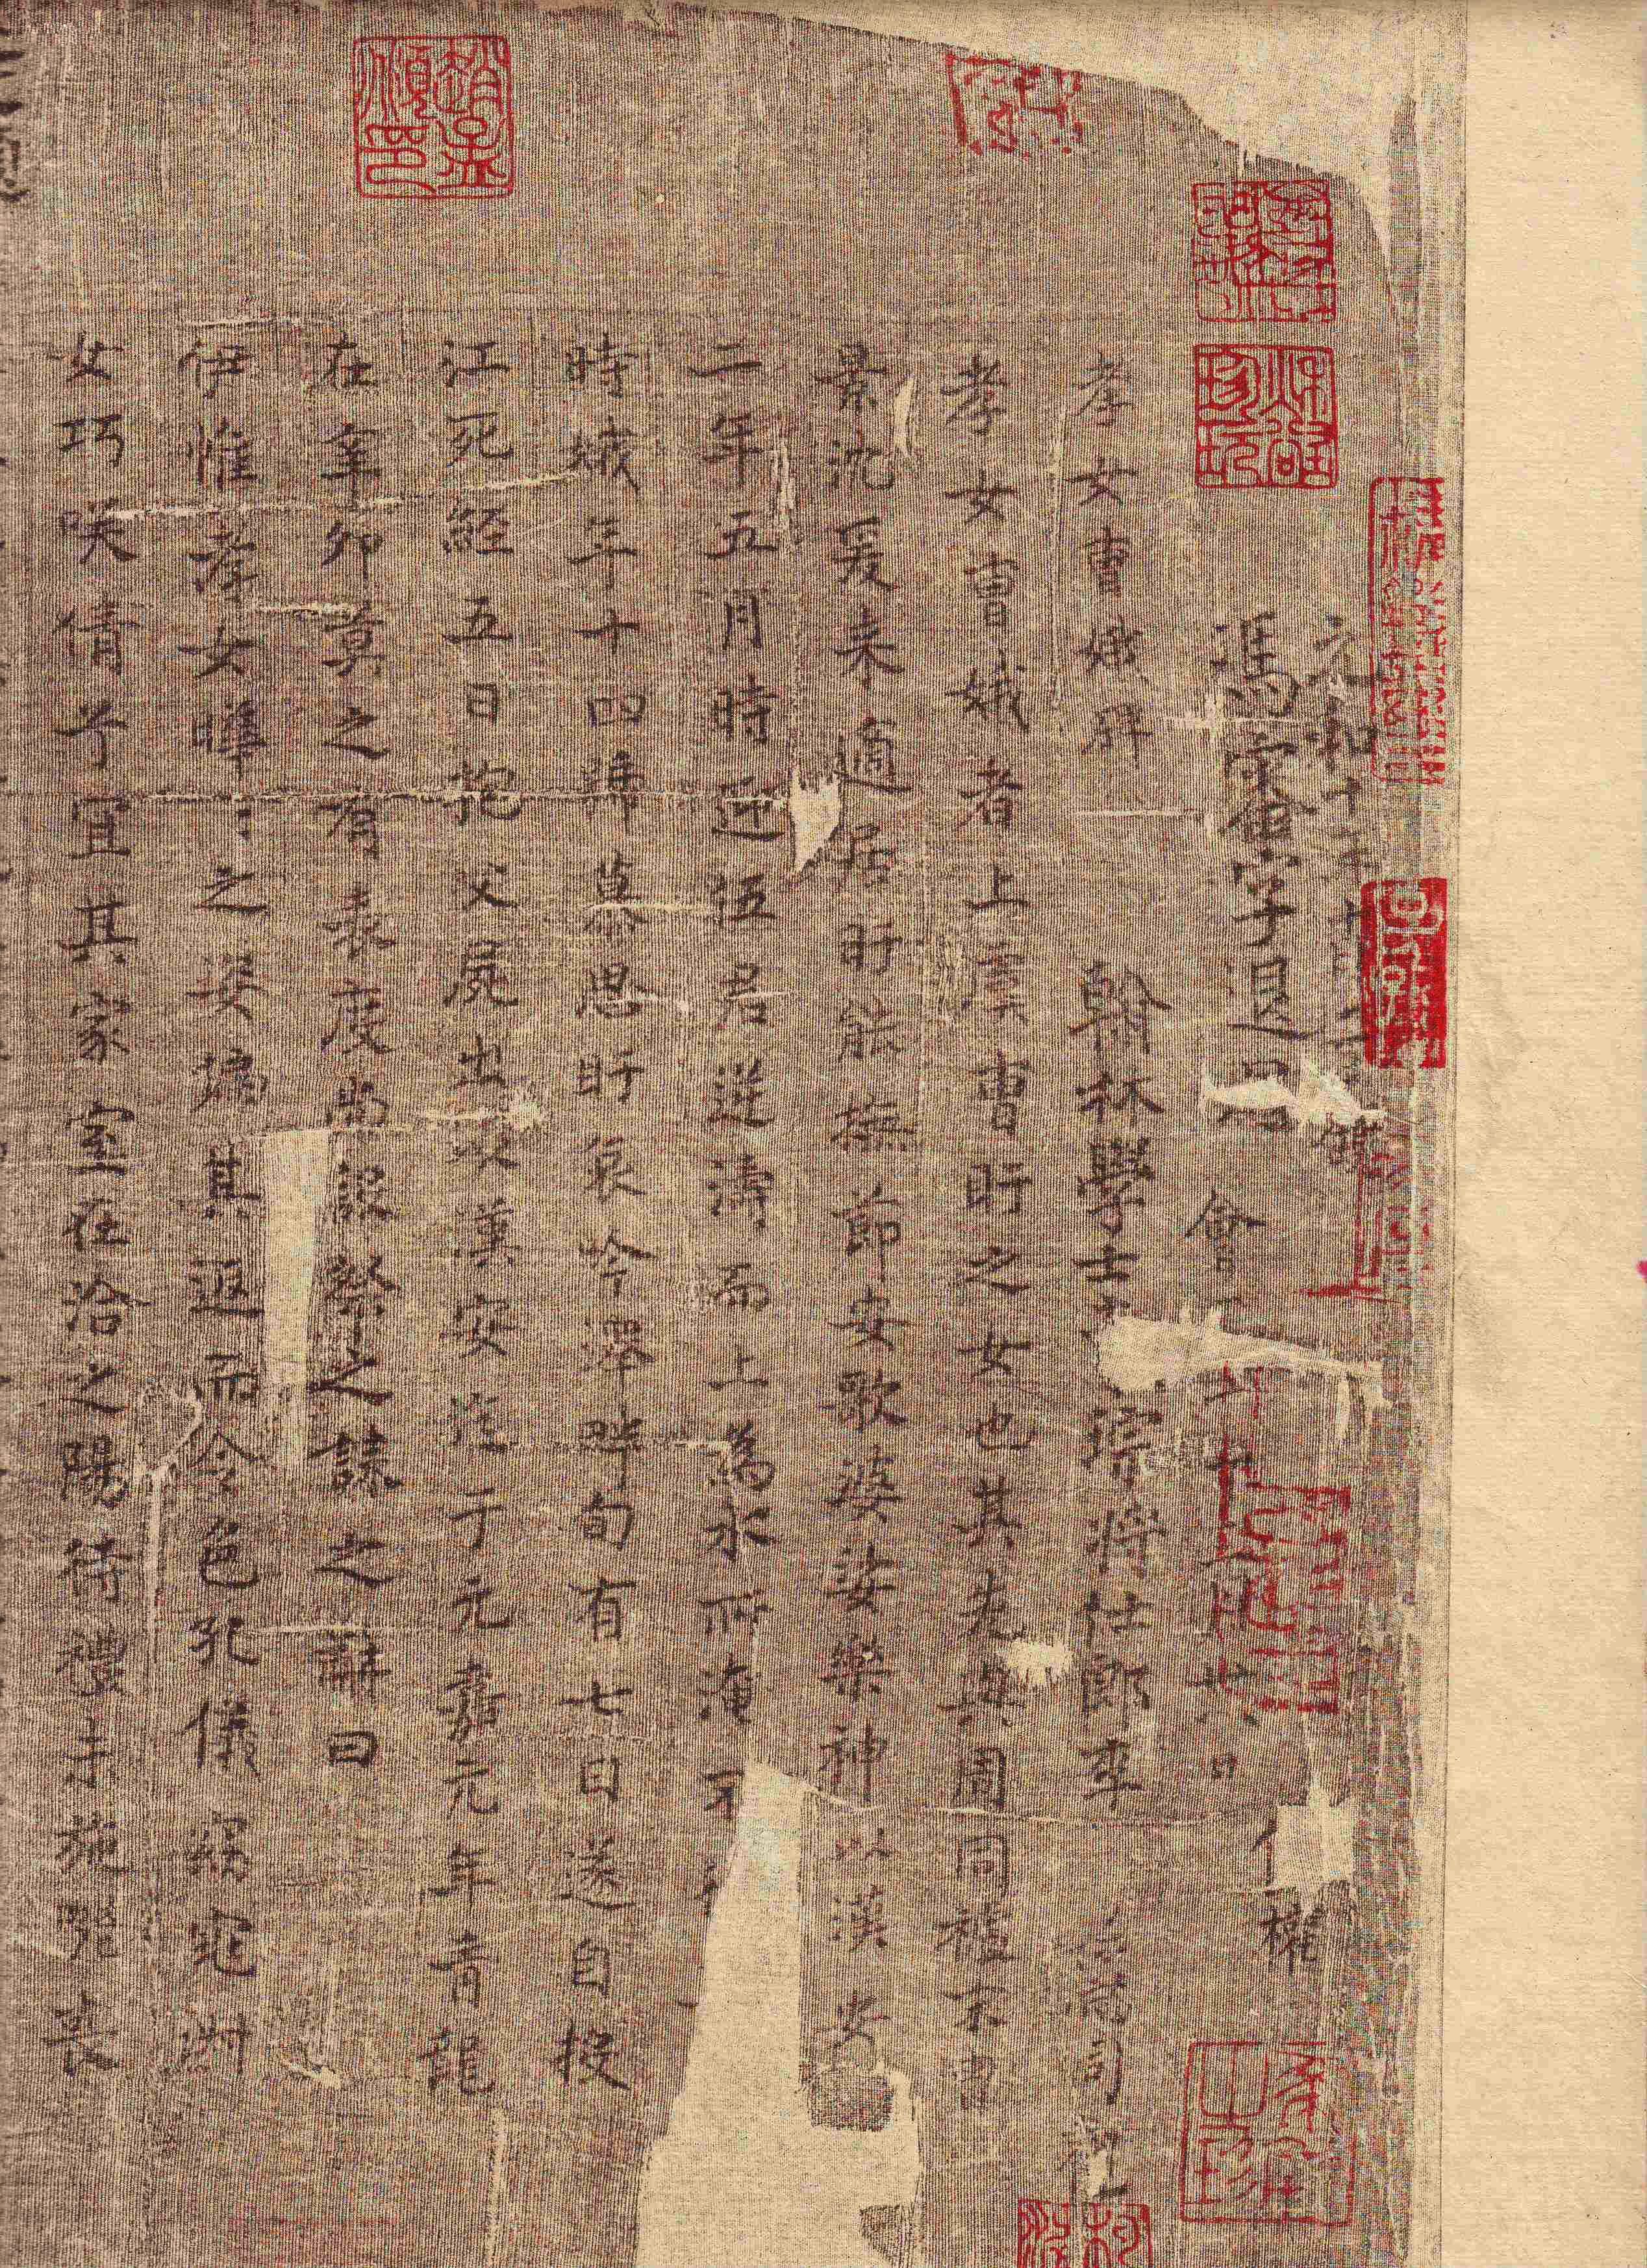 馮審字退思
孝女曹娥碑
翰林學士
孝女曹娥者上虞曹盱之女也其先與周同祖末胄
景沈爰來適居盱能撫節安歌婆娑樂神以漢安
二年五月時迎伍君逆濤而上為水所淹不
時娥年十四號慕思盱哀吟澤畔旬有七日遂自投
江死經五日抱父屍出以漢安迄于元嘉元年青龍
在辛卯莫之有表度尚設祭之誄之辭曰
伊惟孝女曄〻之姿偏其返而令色孔儀窈窕淑
女巧咲倩兮宜其家室在洽之陽待禮未施嗟喪